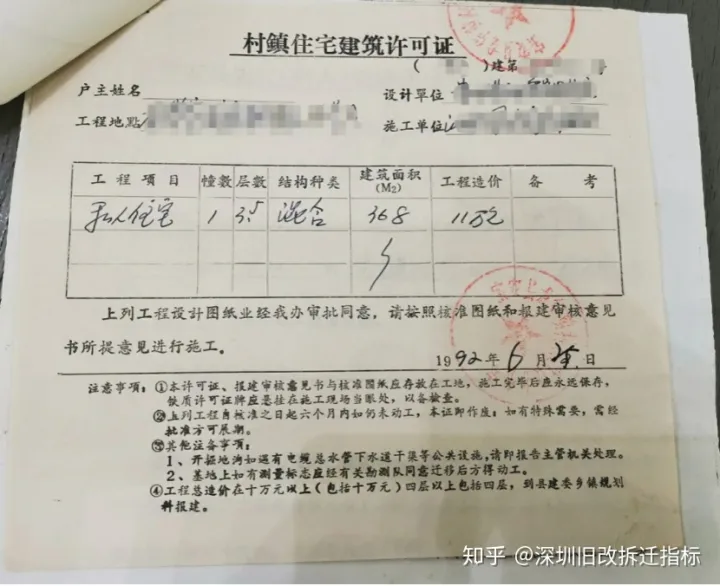 村鎮住宅建筑许可证
( )建第
户主姓名
设计單位
工程地點
施工单位
工程项目 幢數 层數 结构种类 建筑面积(M2) 工程造价 备考
私人住宅 1 3.5 混合 368 11万元
上列工程设计图纸业经我办审批同意，请按照核准图纸和报建审核意见
书所提意见进行施工。
1992年6月 日
注意事项：①本许可证、报建审核意见书与核准图纸应存放在工地，施工完毕后应永远保存，
铁质许可证牌应悬挂在施工现场当眼处，以备检查。
②上列工程自核准之日起六个月内如仍未动工，本证即作废；如有特殊需要，需经
批准方可展期。
③其他注备事项：
1、开掘地沟如遇有电缆总水管下水道干渠等公共设施，请即报告主管机关处理。
2、基地上如有测量标志应经有关勘测队同意迁移后方得动工。
④工程总造价在十万元以上(包括十万元)四层以上包括四层，到县建委乡镇规划
科报建。
知乎 @深圳旧改拆迁指标